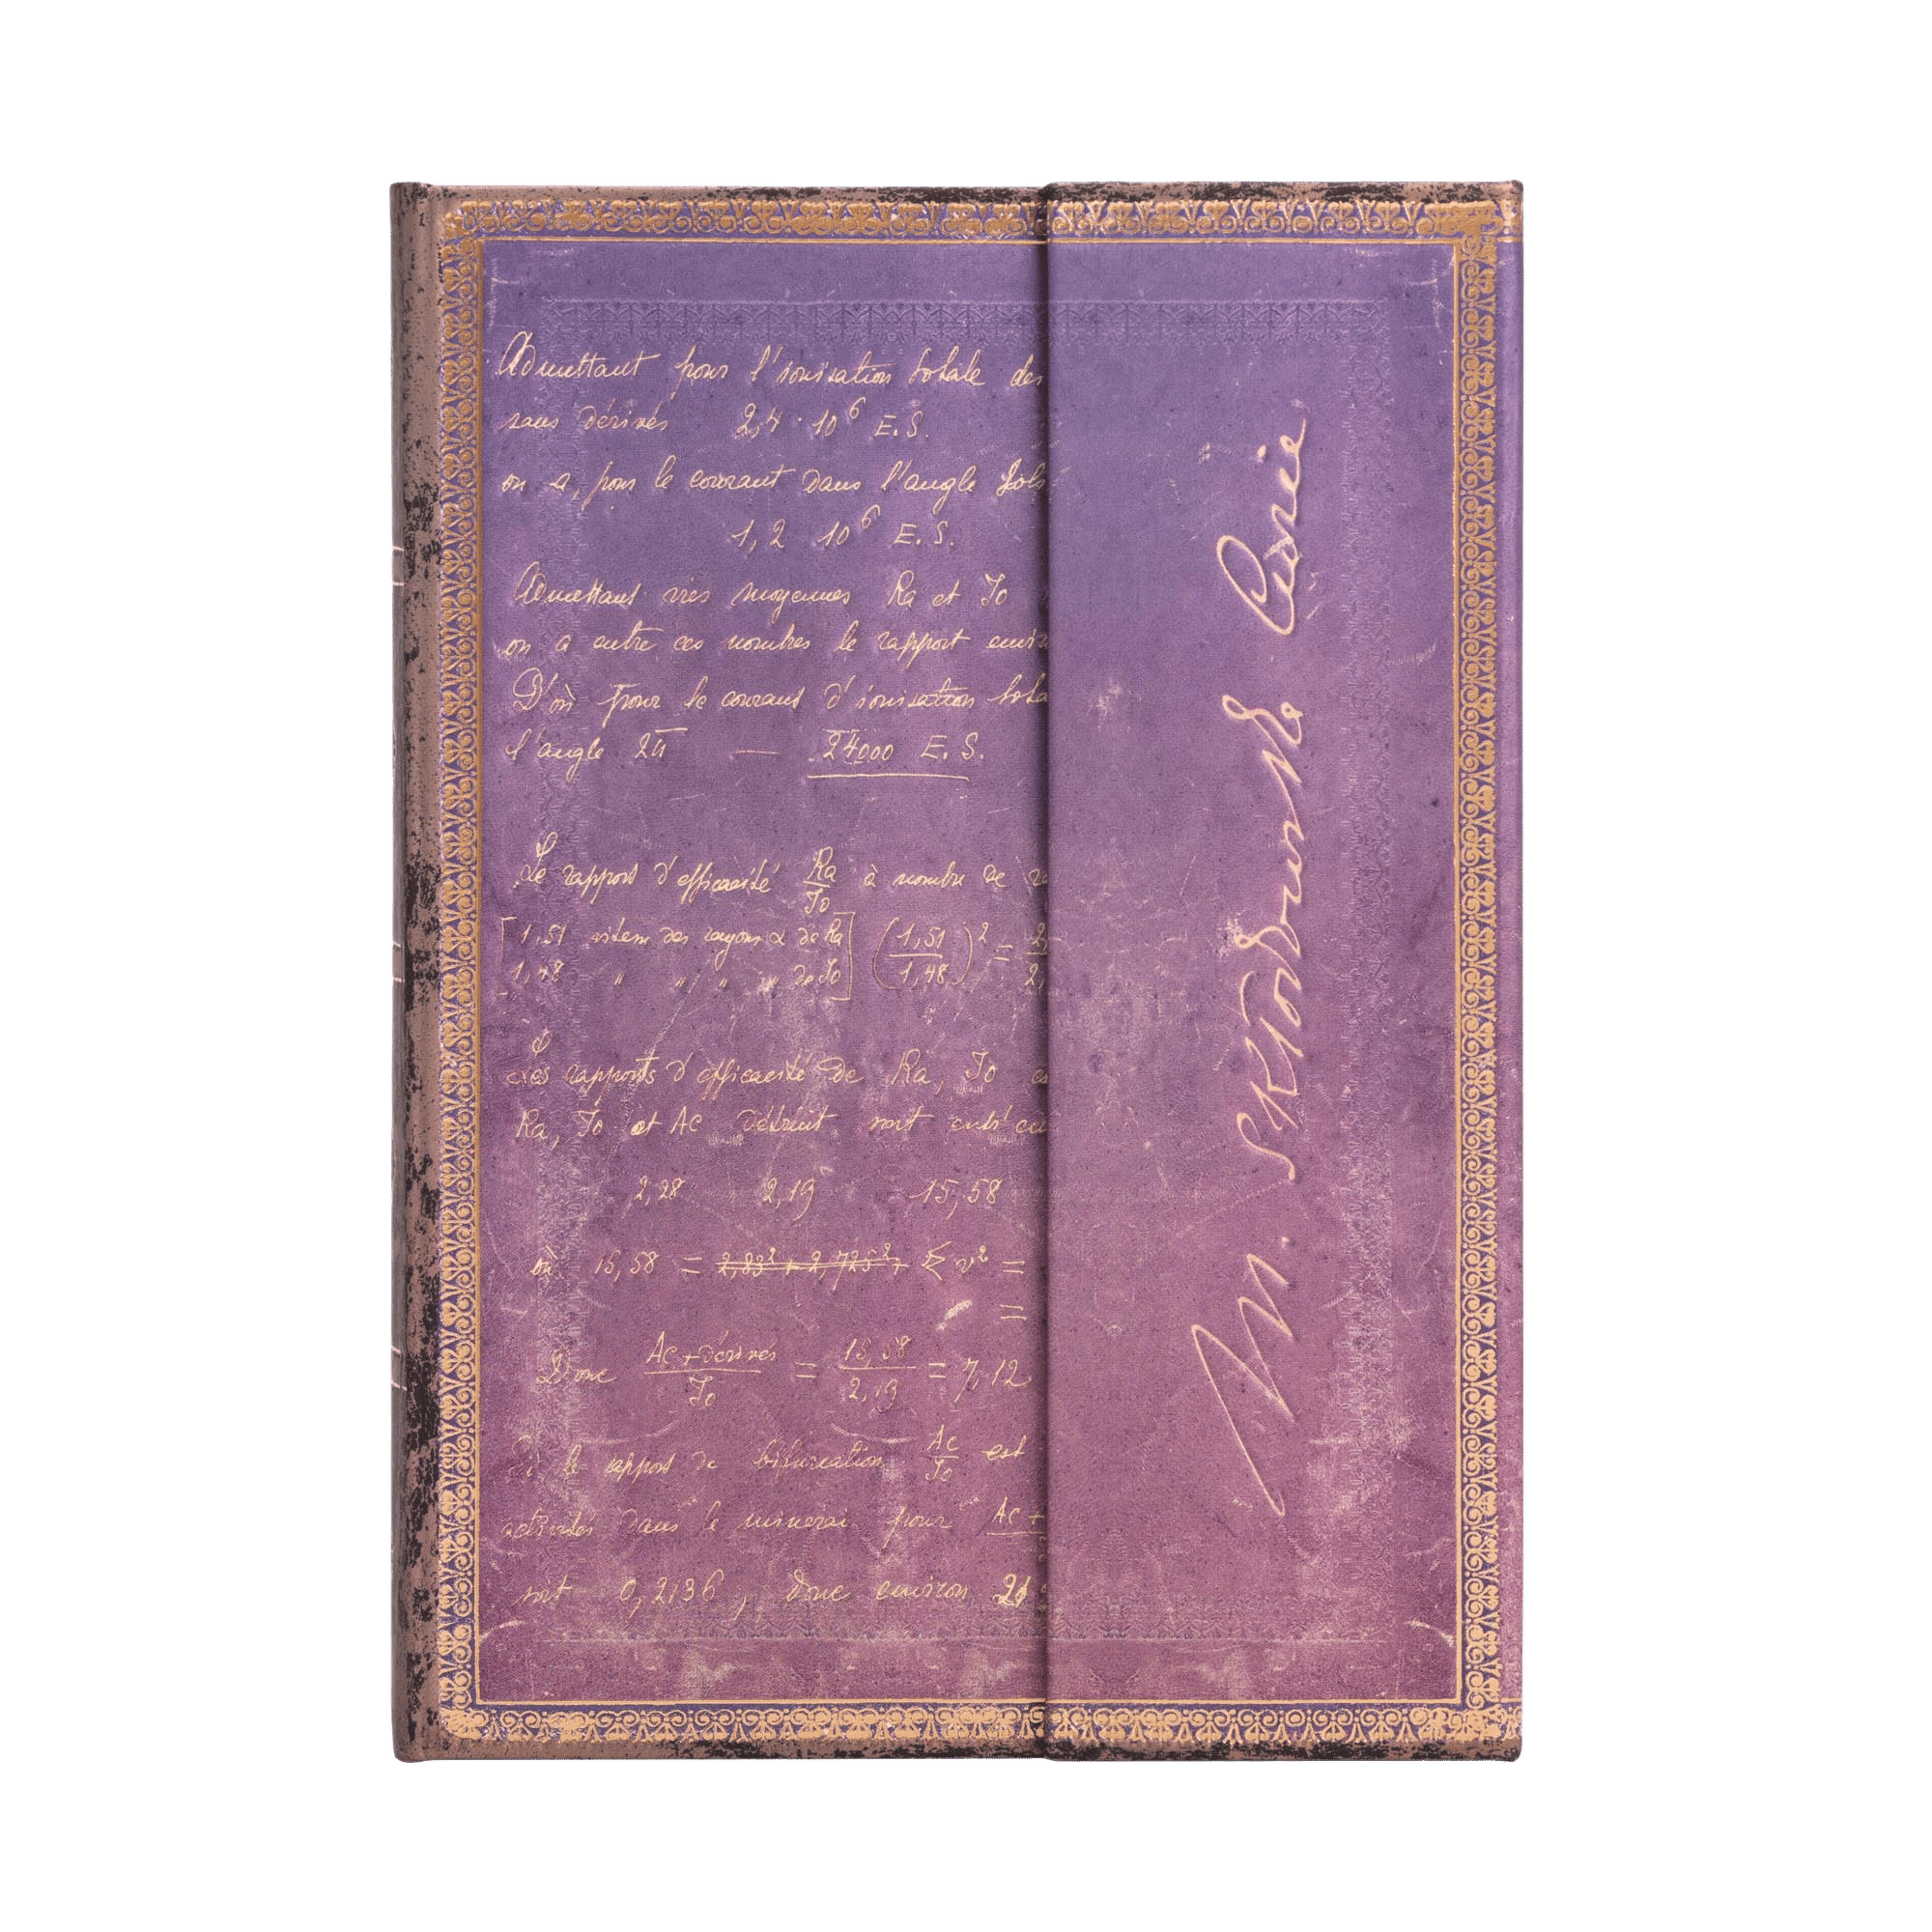 Admettant pour l'ionisation totale des
sans dérivés 2,4 · 10⁶ E.S.
on a, pour le courant dans l'angle
1,2 10⁶ E.S.
Admettant vies moyennes Ra et Io
on a entre ces nombres le rapport
D'où pour le courant d'ionisation
l'angle 2π — 24000 E.S.
Le rapport d'efficacité Ra/Io à nombre de
[1,51 vitesse des rayons α de Ra
1,48 " " " " de Io] (1,51/1,48)² =
Les rapports d'efficacité de Ra, Io
Ra, Io et Ac détruit sont
2,28 2,19 15,58
où 15,58 = 2,83² + 2,725² + Σ v² =
=
Donc Ac+dérivés/Io = 15,58/2,19 = 7,12
Si le rapport de bifurcation Ac/Io est
activités dans le minerai pour Ac +
soit 0,2136, donc environ
M. Skłodowska Curie